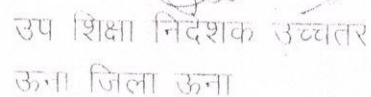 उप शिक्षा निदेशक उच्चतर
ऊना जिला ऊना